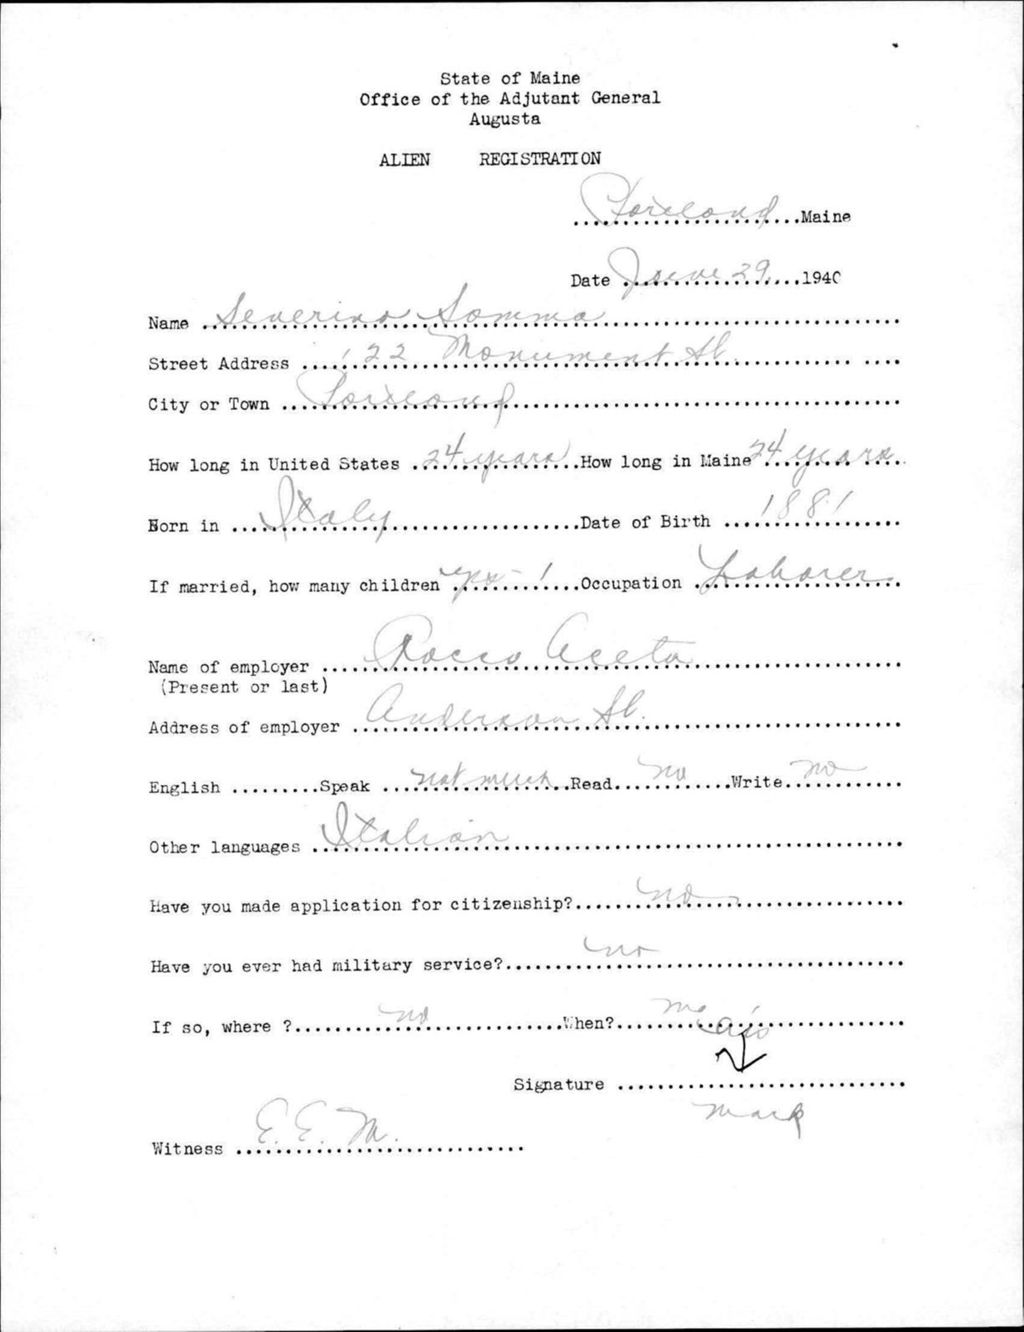 State of Maine
Office of the Adjutant General
Augusta
ALIEN REGISTRATION
Portland Maine
Date June 29 1940
Name Severino Somma
Street Address 122 Monument St.
City or Town Portland
How long in United States 24 years How long in Maine 24 years
Born in Italy Date of Birth 1881
If married, how many children yes - 1 Occupation Laborer
Name of employer Rocco Aceto
(Present or last)
Address of employer Anderson St.
English Speak not much Read no Write no
Other languages Italian
Have you made application for citizenship? no
Have you ever had military service? no
If so, where ? no When? no
Signature
mark
Witness E. E. M.